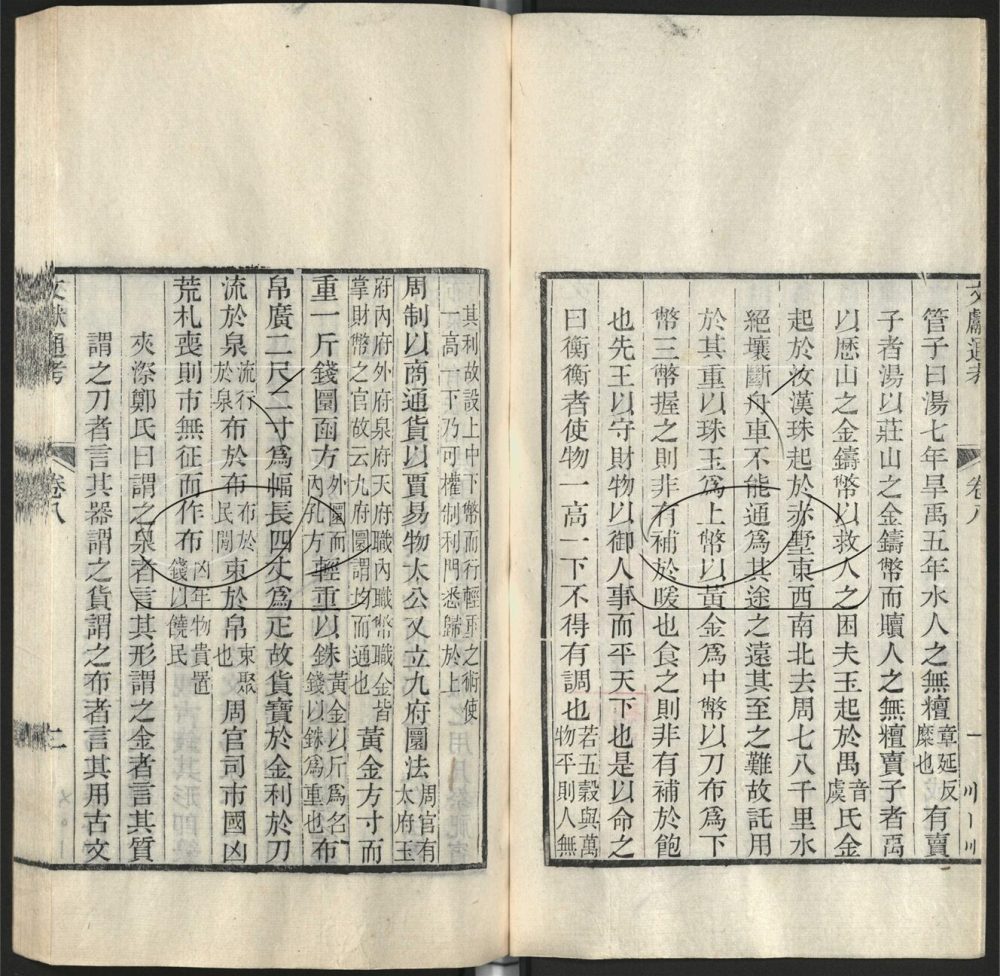 文獻通考 卷八 一
管子曰湯七年旱禹五年水人之無䊤章延反糜也有賣
子者湯以莊山之金鑄幣而贖人之無䊤賣子者禹
以歷山之金鑄幣以救人之困夫玉起於禺音虞氏金
起於汝漢珠起於赤墅東西南北去周七八千里水
絕壤斷舟車不能通爲其途之遠其至之難故託用
於其重以珠玉爲上幣以黃金爲中幣以刀布爲下
幣三幣握之則非有補於暖也食之則非有補於飽
也先王以守財物以御人事而平天下也是以命之
曰衡衡者使物一高一下不得有調也若五穀與萬物平則人無
其利故設上中下幣而行輕重之術使一高一下乃可權制利門悉歸於上
周制以商通貨以賈易物太公又立九府圜法周官有太府玉
府內府外府泉府天府職內職幣職金皆掌財幣之官故云九府圜謂均而通也黃金方寸而
重一斤錢圜函方外圜而內孔方輕重以銖黃金以斤爲名錢以銖爲重也布
帛廣二尺二寸爲幅長四丈爲疋故貨寶於金利於刀
流於泉流行於泉布於布布於民閒束於帛束聚也周官司市國凶
荒札喪則市無征而作布凶年物貴置錢以饒民
夾漈鄭氏曰謂之泉者言其形謂之金者言其質
謂之刀者言其器謂之貨謂之布者言其用古文
文獻通考 卷八 二